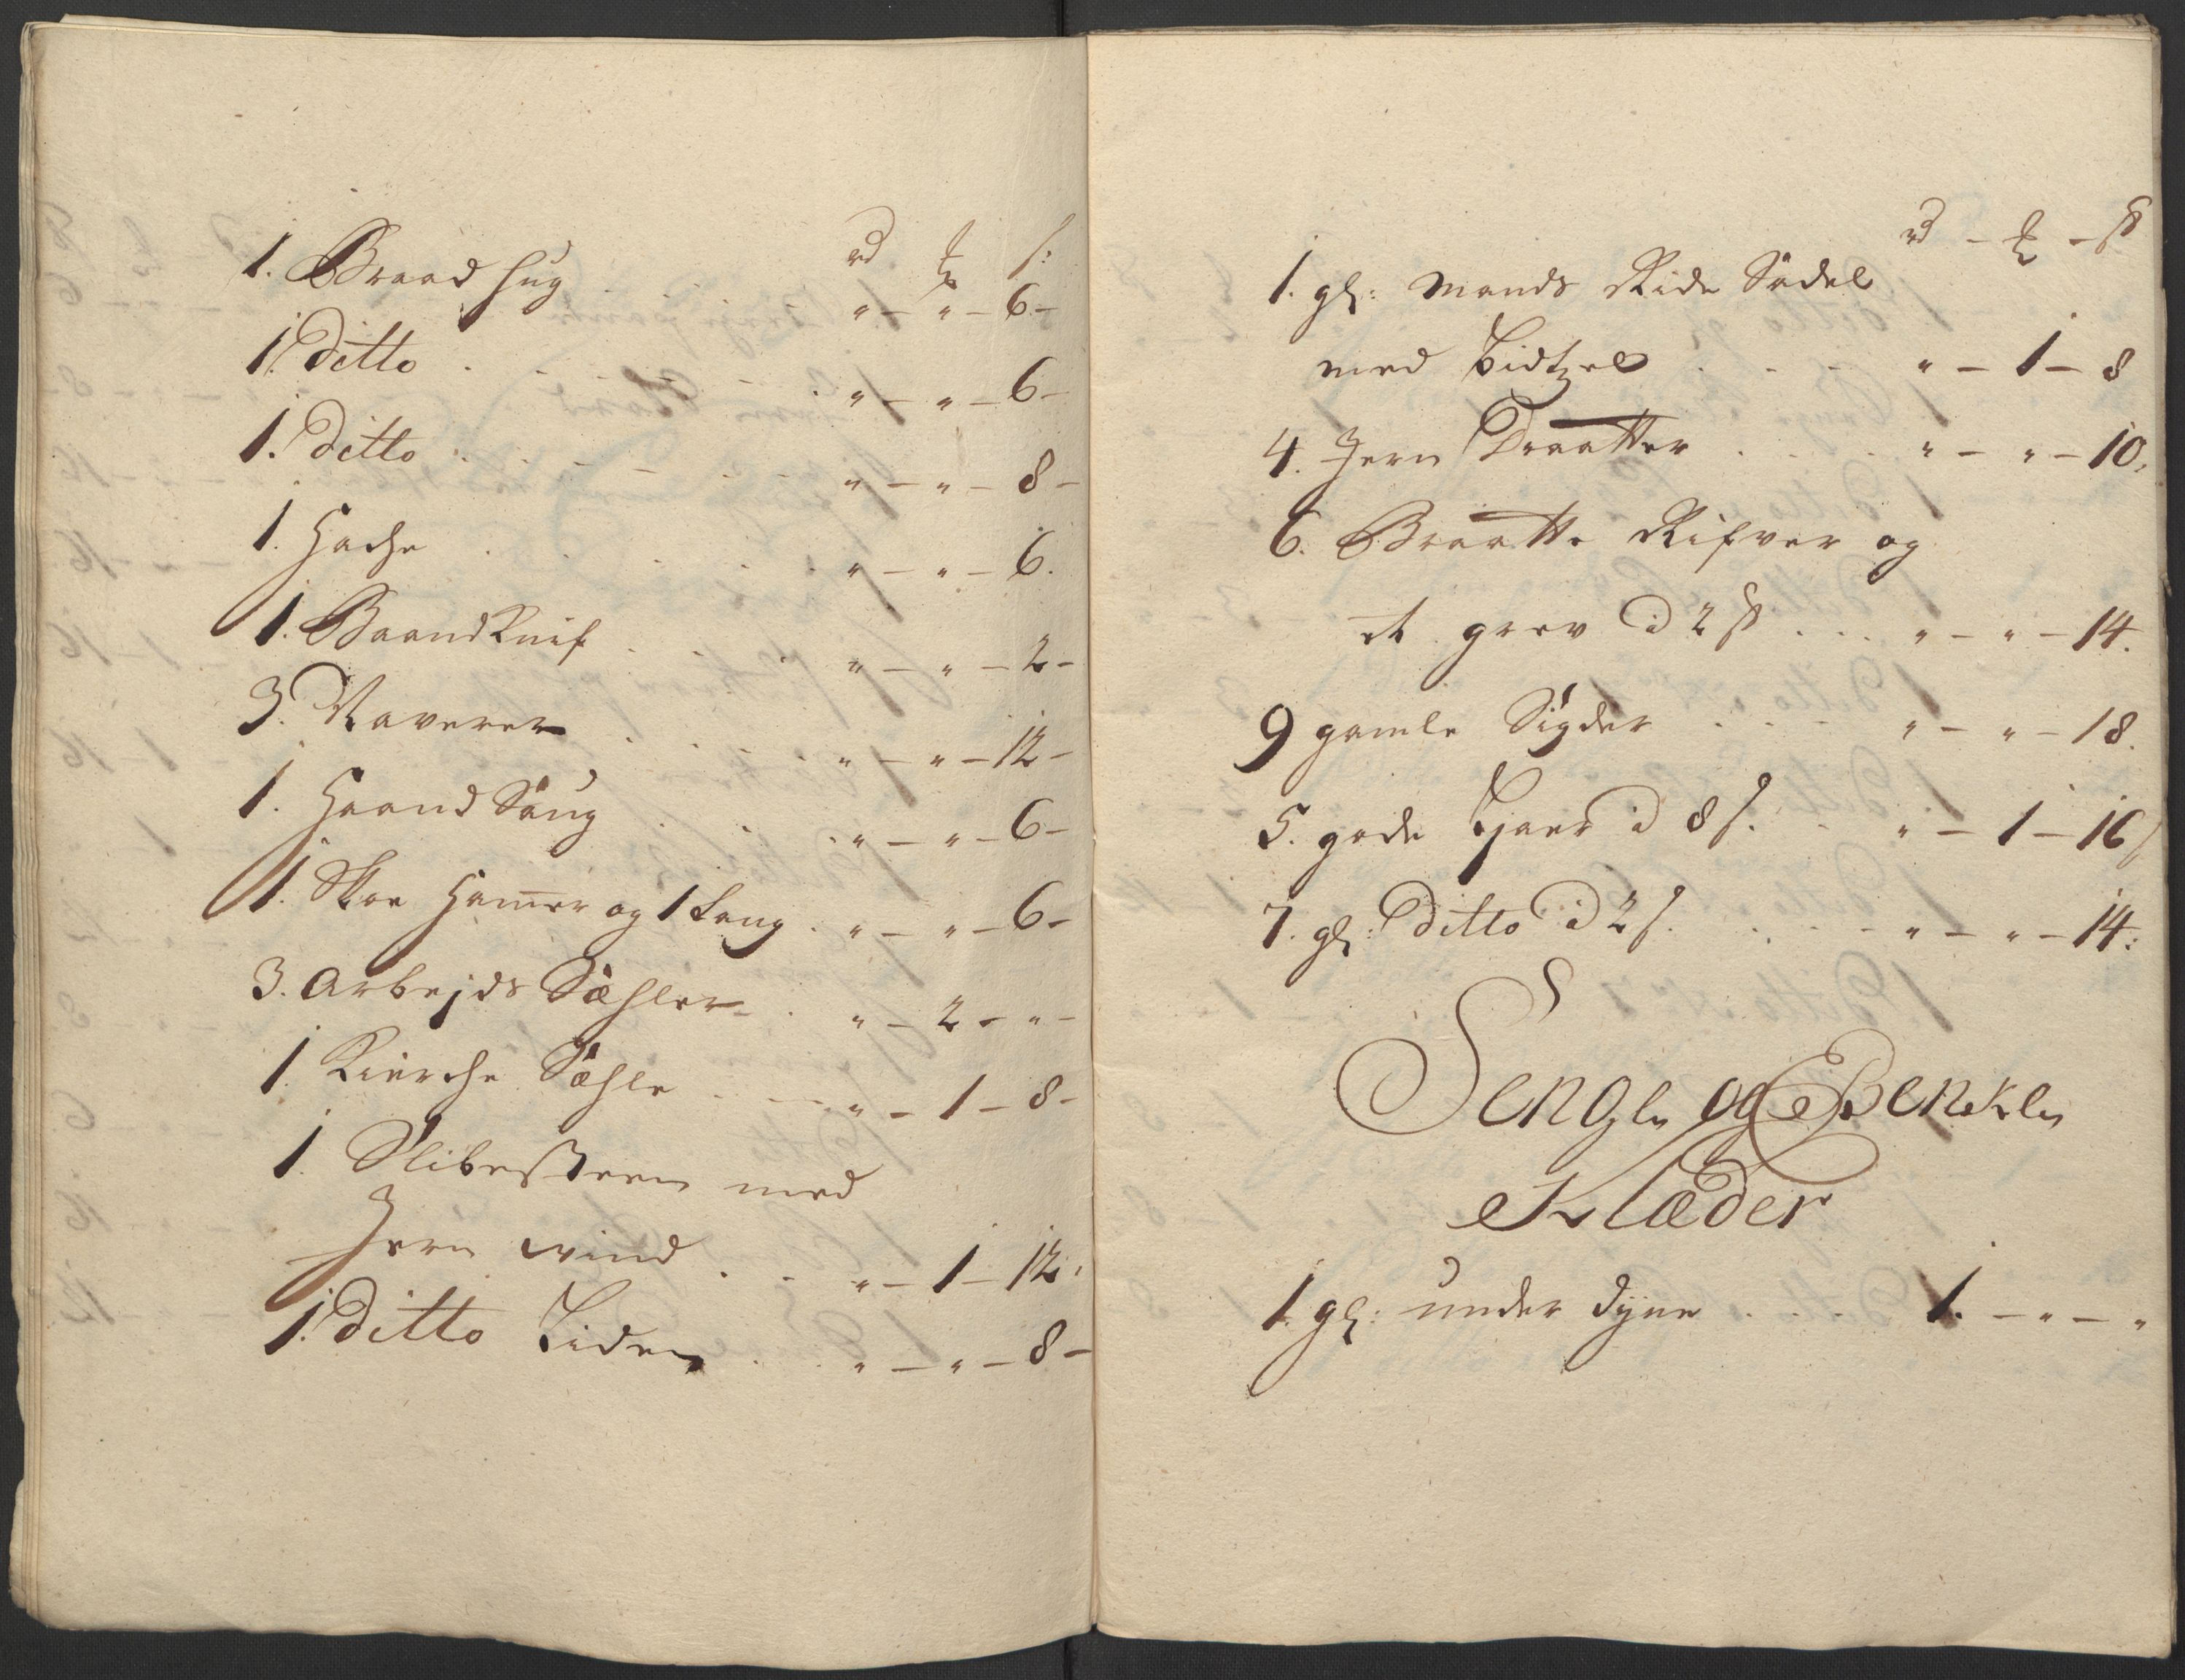 rd ɱ s:
1. Braad hug . . . " – " – 6 –
1. Ditto . . . " – " – 6 –
1. Ditto . . . " – " – 8 –
1. Hache . . . " – " – 6.
1. BaandKnif . . . " – " – 2 –
3. Naverer . . . " – " – 12 –
1. Haand Saug . . . " – " – 6 –
1. Skoe Hamer og 1 Tang . " – " – 6 –
3. Arbejds Sæhler . " – 2 – " –
1. Kierche Sæhle . . . " – 1 – 8 –
1. Slibesteen med
Jern vind . . . " – 1 – 12.
1. Ditto Liden . . " – " – 8 –
rd – ɱ – ß
1. gl: Mands Ride Sadel
med bidtzel . . . " – 1 – 8
4. Jern . . . " – " – 10.
6. Braatte Rifver og
et grev à 2 ß . . . " – " – 14.
9 gamle Sigder . . . " – " – 18.
5. gode Ljaer à 8 s. . " – 1 – 16 s
7. gl: Ditto à 2 s. . . " – " – 14:
Senge og Benke
Klæder
1. gl: under dyne . . . 1. – " – "